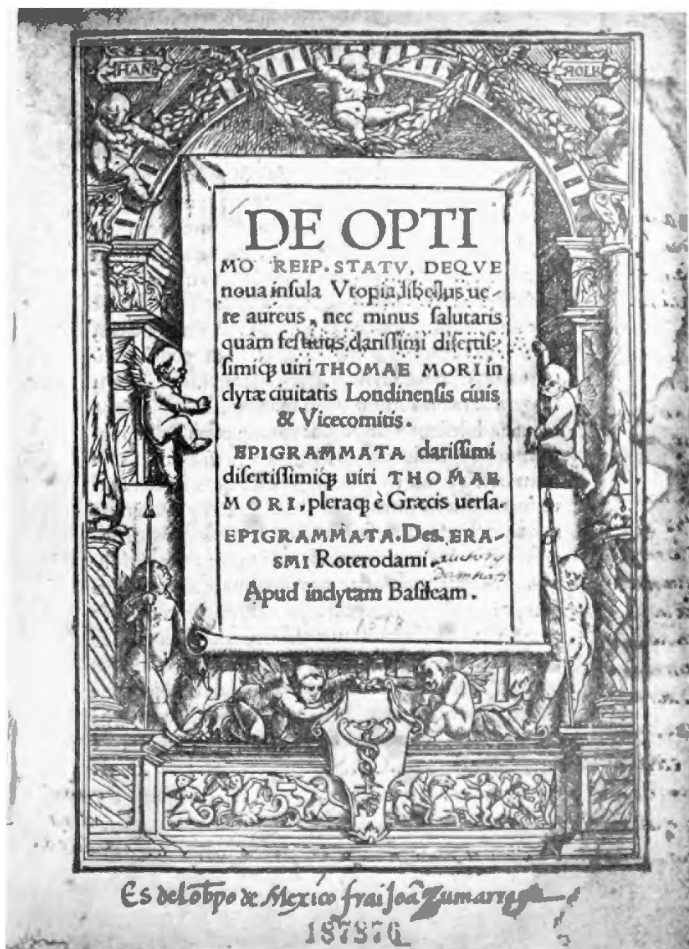 HANS
HOLB
DE OPTI
MO REIP. STATV, DEQVE
noua insula Vtopia, libellus ue-
re aureus, nec minus salutaris
quàm festiuus, clarissimi disertis-
simiq; uiri THOMAE MORI in
clytæ ciuitatis Londinensis ciuis
& Vicecomitis.
EPIGRAMMATA clarissimi
disertissimiq; uiri THOMAE
MORI, pleraq; è Græcis uersa.
EPIGRAMMATA. Des. ERA-
SMI Roterodami.
Apud inclytam Basileam.
1518
Es del obpo de Mexico frai Joã Zumarraga
187876